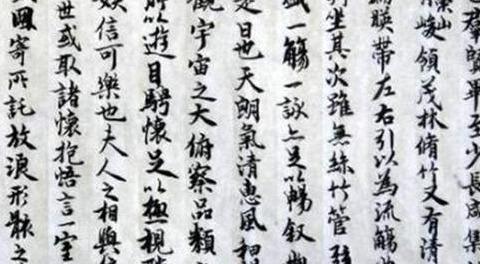 群賢畢至少長咸集
崇山峻領茂林脩竹又有清
映帶左右引以為流觴曲
列坐其次雖無絲竹管弦
盛一觴一詠亦足以暢敘幽
是日也天朗氣清惠風和
觀宇宙之大俯察品類
所以遊目騁懷足以極視聽
娛信可樂也夫人之相與
世或取諸懷抱悟言一室
因寄所託放浪形骸之